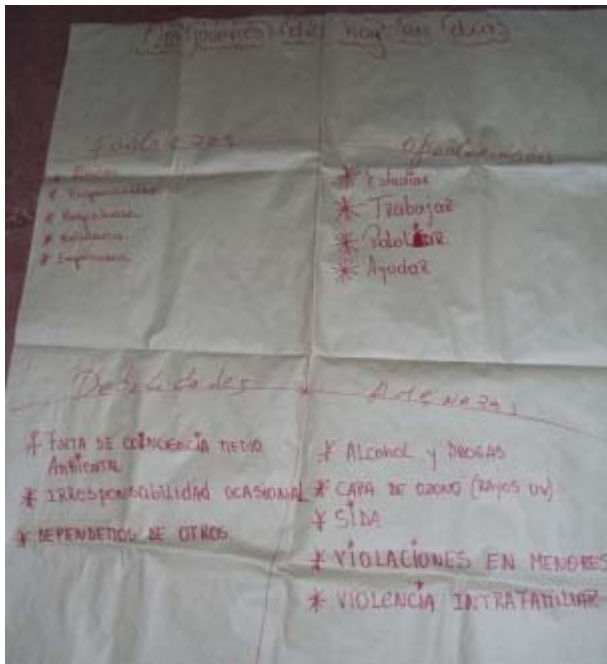 Los jovenes de hoy en dia
Fortalezas
Oportunidades
* Estudiar
* Trabajar
* Pololear
* Ayudar
Debilidades
Amenazas
* FALTA DE COINCIENCIA MEDIO
AMBIENTAL
* IRRESPONSABILIDAD OCASIONAL
* DEPENDEMOS DE OTROS
* Alcohol y DROGAS
* CAPA DE OZONO (RAYOS UV)
* SIDA
* VIOLACIONES EN MENORES
* VIOLENCIA INTRAFAMILIAR